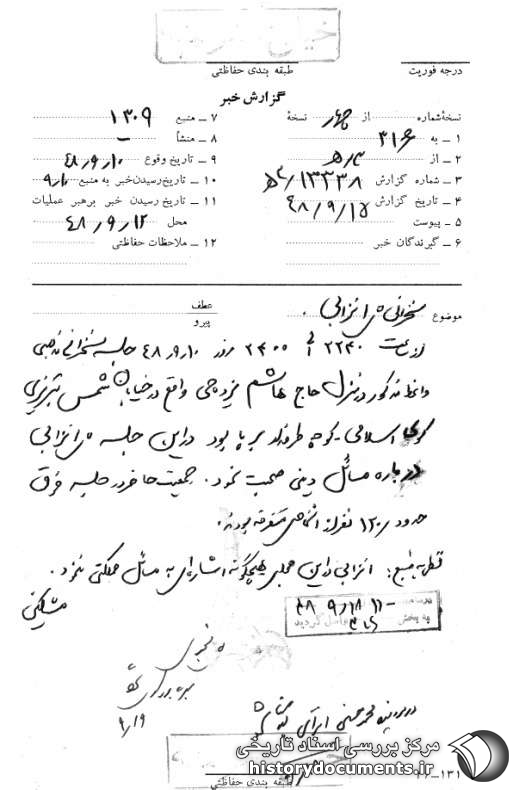 طبقه بندی حفاظتی
درجه فوریت
گزارش خبر
نسخهٔ شماره از چهار نسخهٔ
۱ ــ به ۳۱۶
۲ ــ از ۵/ه‍
۳ ــ شماره گزارش ۱۳۳۳۸/ه‍
۴ ــ تاریخ گزارش ۴۸/۹/۱۵
۵ ــ پیوست
۶ ــ گیرندگان خبر
۷ ــ منبع ۱۳۰۹
۸ ــ منشأ ــ
۹ ــ تاریخ وقوع ۴۸/۹/۱۰
۱۰ ــ تاریخ رسیدن خبر به منبع ۹/۱۰
۱۱ ــ تاریخ رسیدن خبر برهبر عملیات
محل ۴۸/۹/۱۲
۱۲ ــ ملاحظات حفاظتی
موضوع سخنرانی انزابی .
عطف
پیرو
از ساعت ۲۲۳۰ الی ۲۴۰۰ روز ۴۸/۹/۱۰ جلسه سخنرانی مذهبی
واعظ مذکور در منزل حاج هاشم واقع در خیابان شمس تبریزی
کوی اسلامی - کوچه برپا بود در این جلسه انزابی
درباره مسائل دینی صحبت نمود . جمعیت حاضر در جلسه فوق
حدود ۱۲۰ نفر از اشخاص متفرقه بودند.
نظریه منبع : انزابی در این مجلس هیچگونه اشاره‌ای به مسائل مملکتی ننمود .
مشکینی
۴۸ ۹ ۱۸
به بخش ۳۱۶ واصل گردید
۹/۱۹
طبقه بندی حفاظتی
مرکز بررسی اسناد تاریخی
historydocuments.ir
۱۳۱ــ